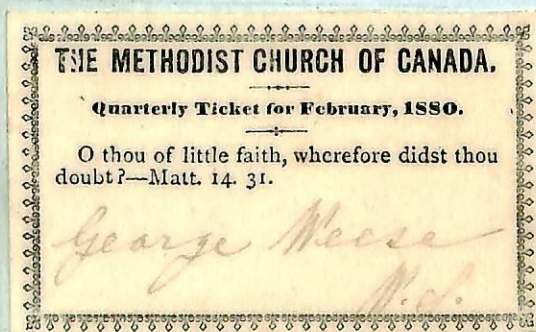 THE METHODIST CHURCH OF CANADA.
Quarterly Ticket for February, 1880.
O thou of little faith, wherefore didst thou
doubt?—Matt. 14. 31.
George Weese